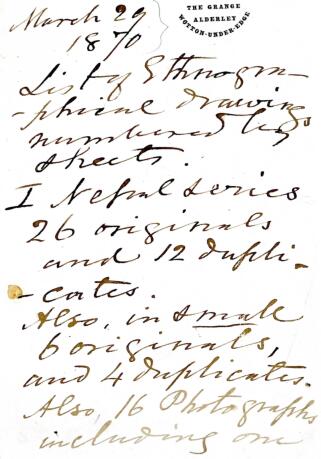 March 29
1870
THE GRANGE
ALDERLEY
WOTTON-UNDER-EDGE
List of Ethnogra-
-phical drawings
numbered by
sheets.
I Nepal series
26 originals
and 12 dupli-
-cates.
Also, in small
6 originals,
and 4 duplicates.
Also, 16 Photographs
including one